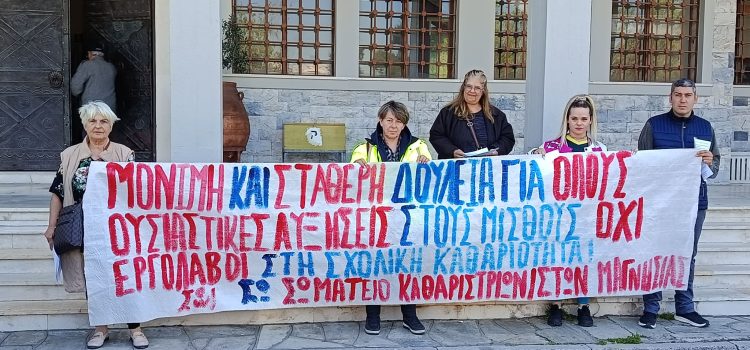 ΜΟΝΙΜΗ ΚΑΙ ΣΤΑΘΕΡΗ ΔΟΥΛΕΙΑ ΓΙΑ ΟΛΟΥΣ
ΟΥΣΙΑΣΤΙΚΕΣ ΑΥΞΗΣΕΙΣ ΣΤΟΥΣ ΜΙΣΘΟΥΣ ΟΧΙ
ΕΡΓΟΛΑΒΟΙ ΣΤΗ ΣΧΟΛΙΚΗ ΚΑΘΑΡΙΟΤΗΤΑ!
ΣΩΜΑΤΕΙΟ ΚΑΘΑΡΙΣΤΡΙΩΝΙΣΤΩΝ ΜΑΓΝΗΣΙΑΣ